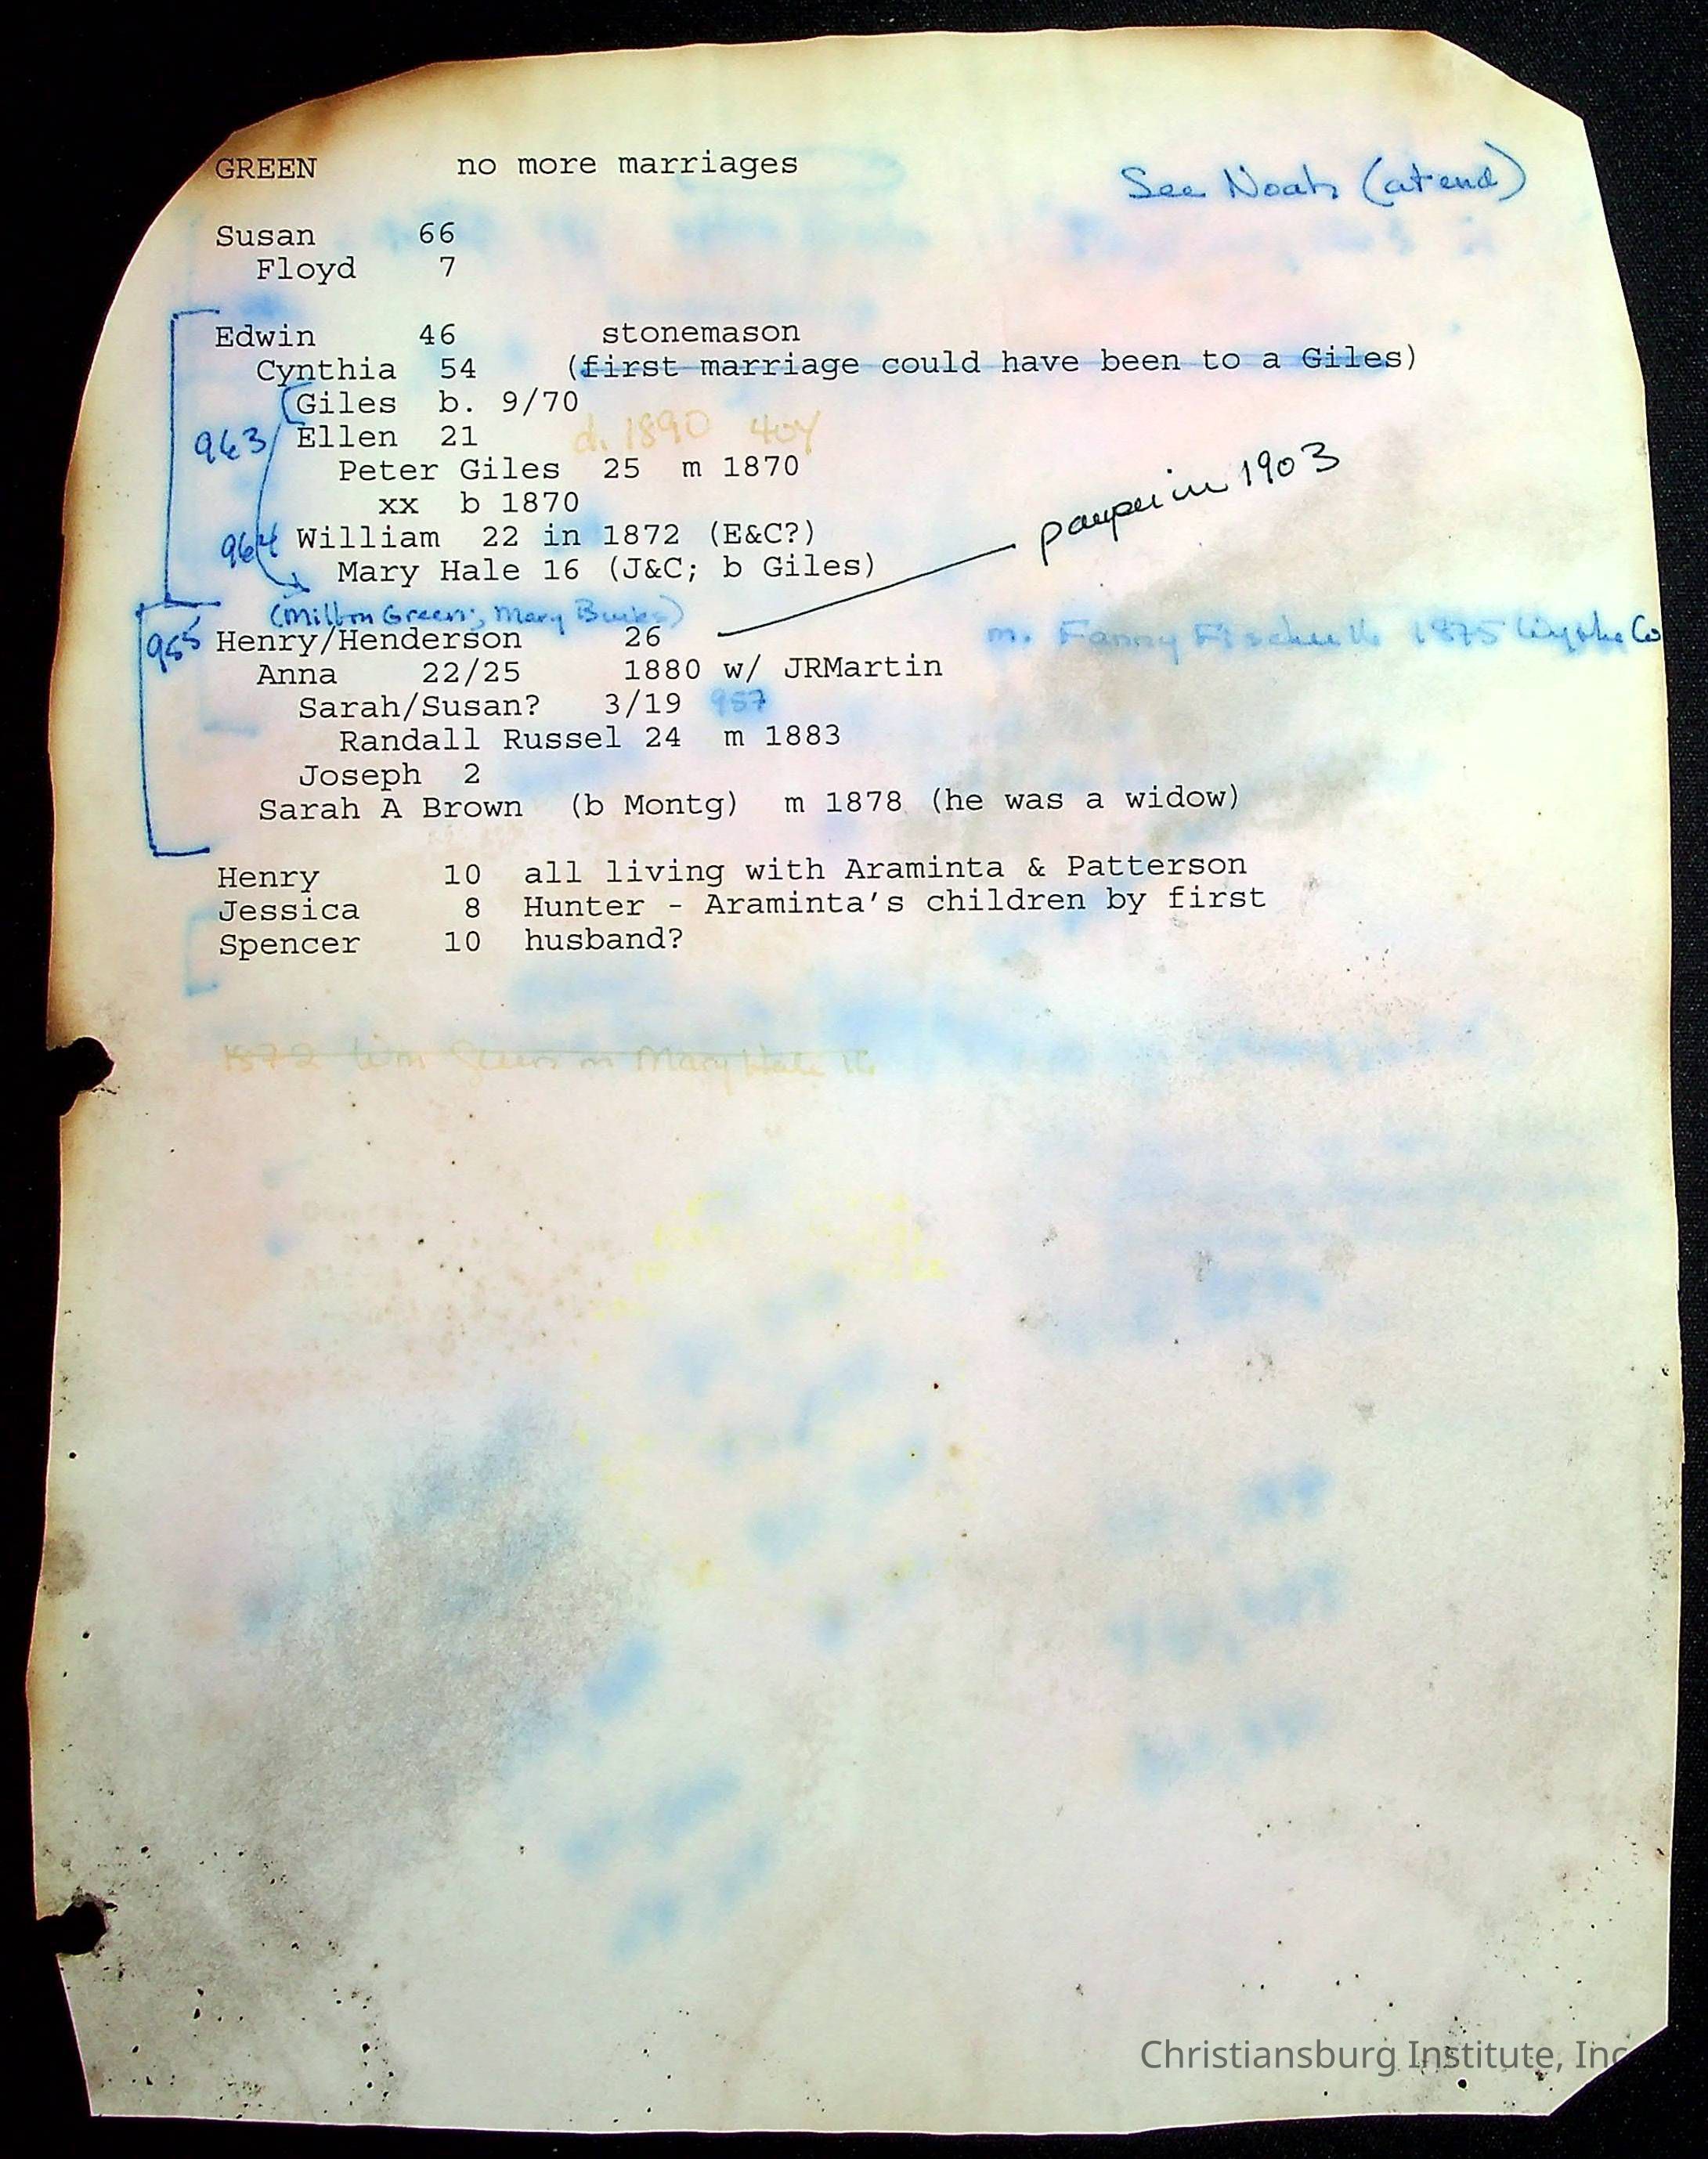 GREEN no more marriages See Noah (at end)
Susan 66
Floyd 7
Edwin 46 stonemason
Cynthia 54 (first marriage could have been to a Giles)
Giles b. 9/70
963 Ellen 21 d. 1890 40y
Peter Giles 25 m 1870
xx b 1870
pauper in 1903
964 William 22 in 1872 (E&C?)
Mary Hale 16 (J&C; b Giles)
(Milton Green; Mary Burks)
965 Henry/Henderson 26 m. Fanny 1875 Wythe Co
Anna 22/25 1880 w/ JRMartin
Sarah/Susan? 3/19 957
Randall Russel 24 m 1883
Joseph 2
Sarah A Brown (b Montg) m 1878 (he was a widow)
Henry 10 all living with Araminta & Patterson
Jessica 8 Hunter - Araminta's children by first
Spencer 10 husband?
1872 Wm Green m Mary Hale 16
Christiansburg Institute, Inc